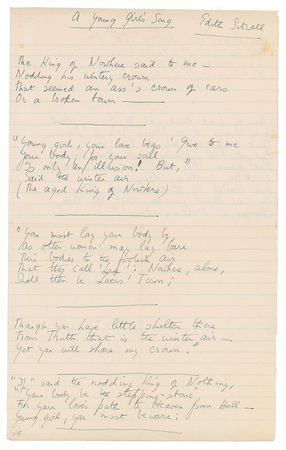 A Young Girl's Song
Edith Sitwell
The King of Nowhere said to me —
Nodding his wintry crown
That seemed an ass's crown of ears
Or a broken town —
"Young girl, your love begs 'Give to me
Your body, for your soul
Is only an illusion.' But,"
Said the winter air
(The aged King of Nowhere)
"You must lay your body by,
As other women may lay bare
Their bodies to the foolish air
That they call 'Love'! Nowhere, alone,
Shall then be Town;
Though you have little shelter there
From Truth that is the winter air —
Yet you will share my crown."
"If" said the nodding King of Nothing,
"Your body be the stepping-stone
For your love's path to Heaven from Hell —
Young girl, you must beware!